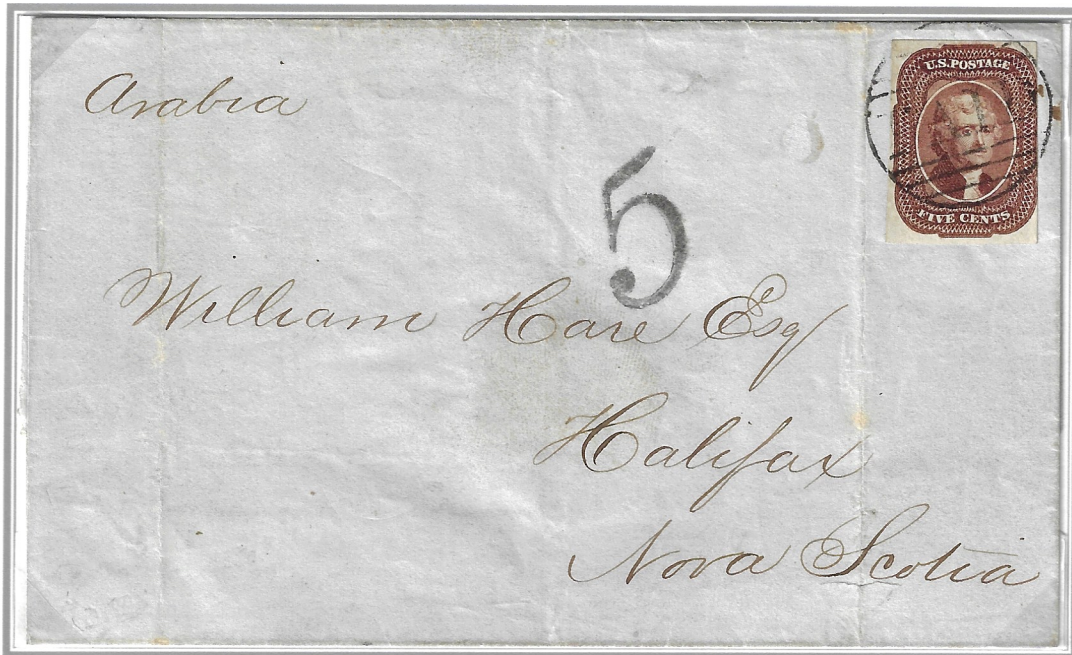 Arabia
U.S. POSTAGE
FIVE CENTS
5
William Hare Esq
Halifax
Nova Scotia